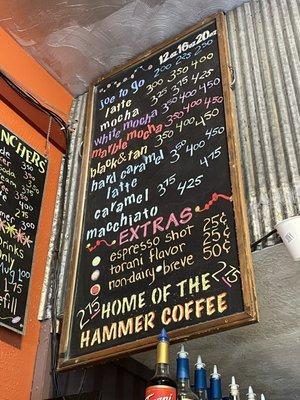 12oz 16oz 20oz
joe to go 2.00 2.25
latte 3.00 3.50 4.00
mocha 3.25 3.75 4.25
white mocha 3.50 4.00 4.50
marble mocha 3.50 4.00 4.50
black & tan 3.50 4.00 4.50
hard caramel 3.50 4.00 4.50
latte
caramel 3.75 4.25 4.75
macchiato
EXTRAS
espresso shot 25¢
torani flavor 25¢
non-dairy • breve 50¢
HOME OF THE
HAMMER COFFEE
NCHERS
Drinks
only
Mug
refill
Torani